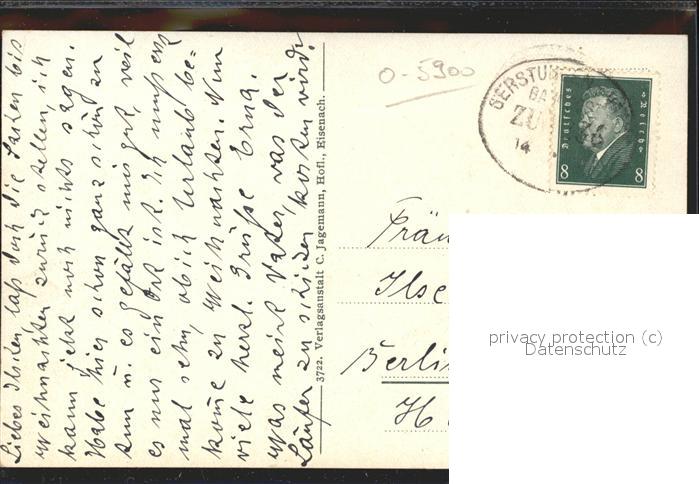 Liebes Ilslein, laß doch die Sachen bis
Weihnachten zurück stellen, ich
kann jetzt noch nichts sagen.
Habe hier schon ganz schön zu
tun u. es gefällt mir gut, weil
es nur ein Ort ist. Ich muß erst
mal sehn, ob ich Urlaub be=
kome zu Weihnachten. Nun
viele herzl. Grüße Erna.
Was meint Vater, was der
Läufer zu schicken kosten wird?
3722. Verlagsanstalt C. Jagemann, Hofl., Eisenach.
0-5900
GERSTUN
BA
ZU
14
Deutsches Reich
8 8
Fräu
Ilse
Berlin
privacy protection (c)
Datenschutz